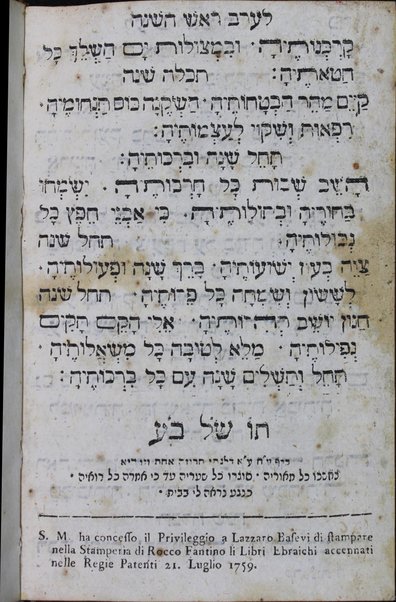 לערב ראש השנה
קָרְבְּנוֹתֶיהָ׃ וּבִמְצוּלוֹת יָם הַשְׁלֵךְ כָּל
חַטֹּאתֶיהָ׃ תכלה שנה
קַיֵּם מַהֵר הַבְטָחוֹתֶיהָ׃ הַשְׁקֶנָּה כּוֹס תַּנְחוּמֶיהָ׃
רִפְאוּת וְשִׁקּוּי לְעַצְמוֹתֶיהָ׃
תָּחֵל שָׁנָה וּבִרְכוֹתֶיהָ׃
הָשֵׁב שְׁבוּת כָּל חֲרָבוֹתֶיהָ. יִשְׂמְחוּ
בַּחוּרֶיהָ וּבְתוּלוֹתֶיהָ. כִּי אַבְנֵי חֵפֶץ כָּל
גְּבוּלוֹתֶיהָ׃ תחל שנה
צַוֵּה בָּעִיר יְשׁוּעוֹתֶיהָ. בָּרֵךְ שָׁנָה וּפְעוּלוֹתֶיהָ.
לְשָׂשׂוֹן וְשִׂמְחָה כָּל פֵּרוֹתֶיהָ תחל שנה
חַנּוּן יוֹשֵׁב תְּהִלּוֹתֶיהָ. אֵל הָקֵם תָּקִים
נְפִילוֹתֶיהָ. מַלֵּא לְטוֹבָה כָּל מִשְׁאֲלוֹתֶיהָ.
תָּחֵל וְתַשְׁלִים שָׁנָה עִם כָּל בִּרְכוֹתֶיהָ׃
תו של בע
בדף ע״א
כל מאוריה. סוגרו כל שעריה עד כי אמרה כל רואיה.
כנגע נראה לי בבית.
S. M. ha concesso il Privileggio a Lazzaro Basevi di stampare
nella Stamperia di Rocco Fantino li Libri Ebraichi accennati
nelle Regie Patenti 21. Luglio 1759.